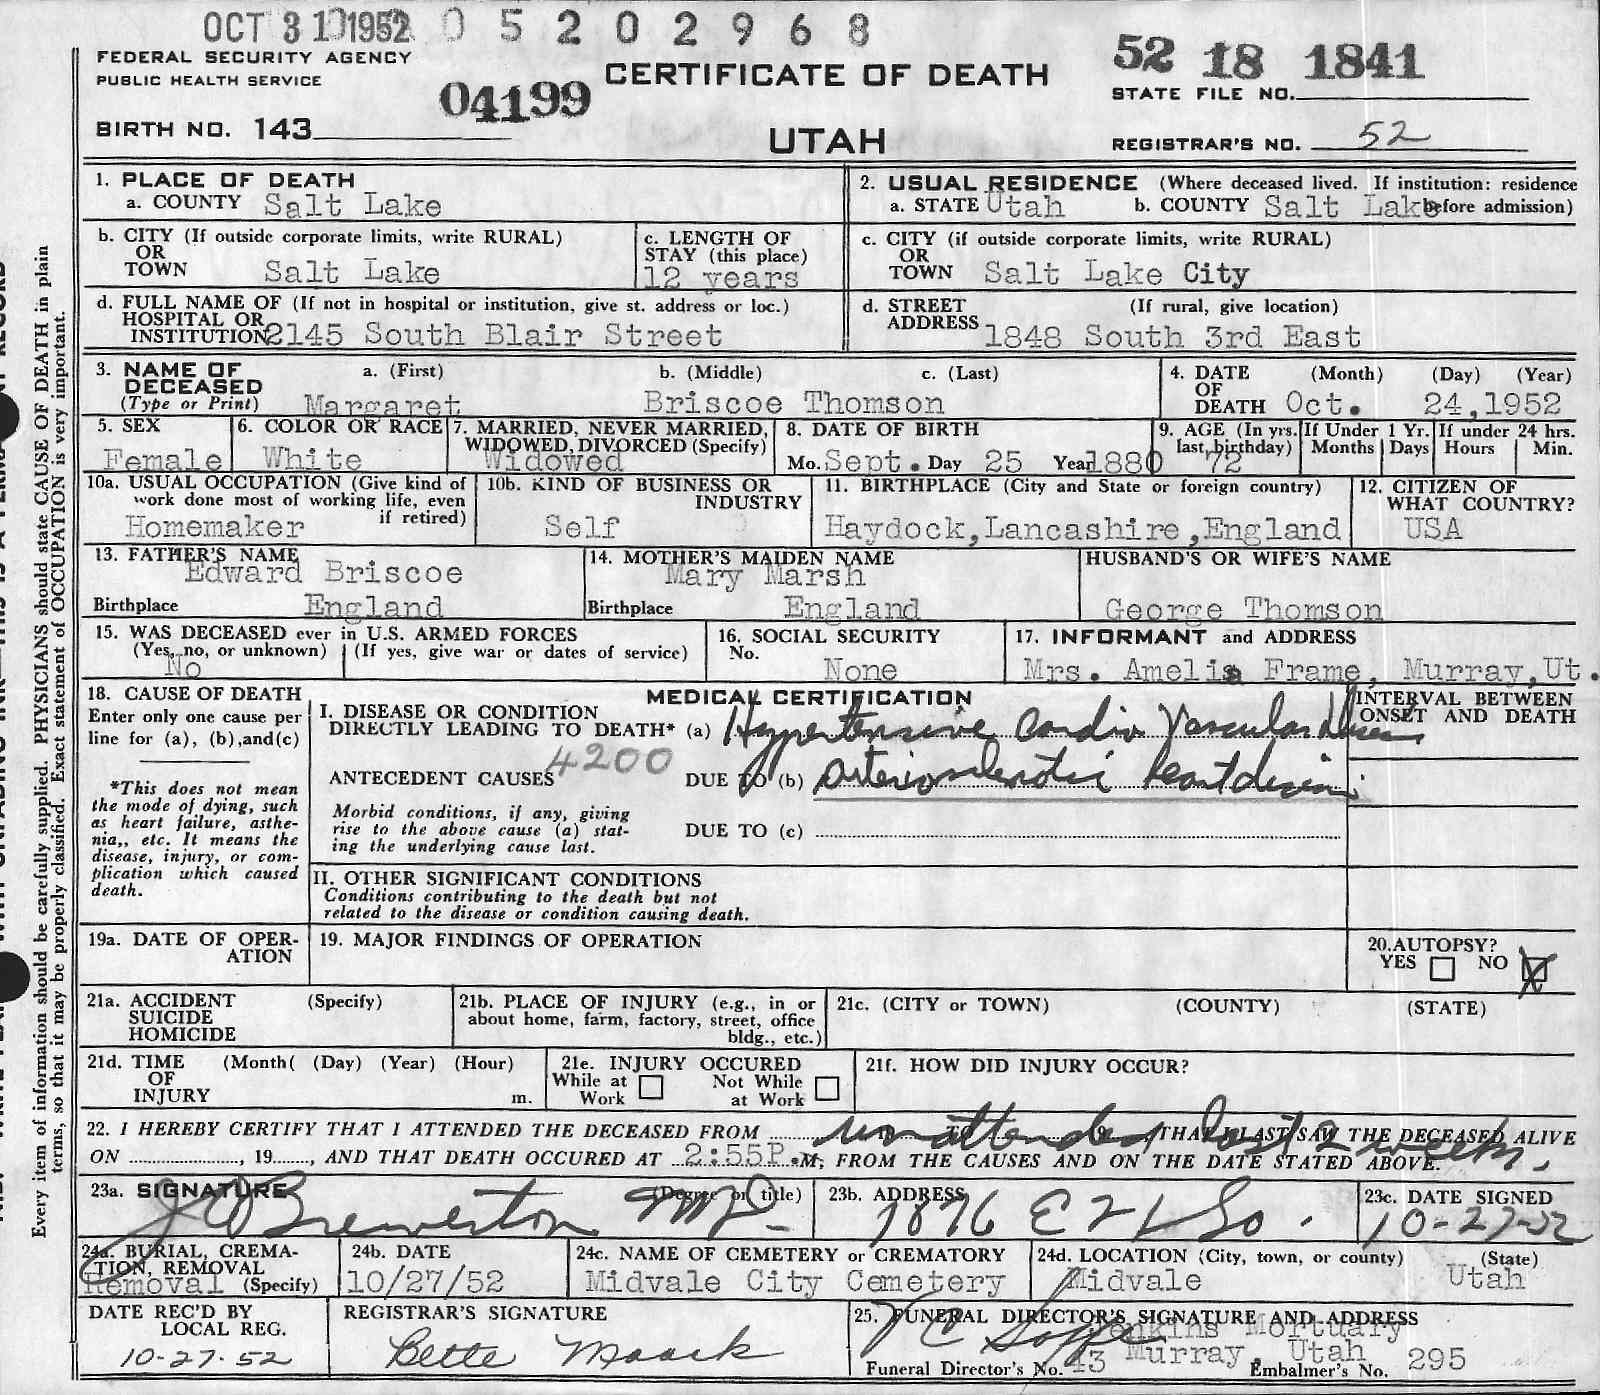 OCT 31 1952 0 5 2 0 2 9 6 8
FEDERAL SECURITY AGENCY
PUBLIC HEALTH SERVICE
04199
CERTIFICATE OF DEATH
52 18 1841
STATE FILE NO.
BIRTH NO. 143
UTAH
REGISTRAR'S NO. 52
1. PLACE OF DEATH
a. COUNTY Salt Lake
2. USUAL RESIDENCE (Where deceased lived. If institution: residence
a. STATE Utah b. COUNTY Salt Lake before admission)
b. CITY (If outside corporate limits, write RURAL)
OR
TOWN Salt Lake
c. LENGTH OF
STAY (this place)
12 years
c. CITY (if outside corporate limits, write RURAL)
OR
TOWN Salt Lake City
d. FULL NAME OF (If not in hospital or institution, give st. address or loc.)
HOSPITAL OR
INSTITUTION 2145 South Blair Street
d. STREET (If rural, give location)
ADDRESS 1848 South 3rd East
3. NAME OF DECEASED (Type or Print)
a. (First) b. (Middle) c. (Last)
Margaret Briscoe Thomson
4. DATE OF DEATH (Month) (Day) (Year)
Oct. 24,1952
5. SEX
Female
6. COLOR OR RACE
White
7. MARRIED, NEVER MARRIED,
WIDOWED, DIVORCED (Specify)
Widowed
8. DATE OF BIRTH
Mo. Sept. Day 25 Year 1880
9. AGE (In yrs. last birthday) 72
If Under 1 Yr. Months Days
If under 24 hrs. Hours Min.
10a. USUAL OCCUPATION (Give kind of
work done most of working life, even
if retired)
Homemaker
10b. KIND OF BUSINESS OR
INDUSTRY
Self
11. BIRTHPLACE (City and State or foreign country)
Haydock,Lancashire,England
12. CITIZEN OF
WHAT COUNTRY?
USA
13. FATHER'S NAME
Edward Briscoe
Birthplace England
14. MOTHER'S MAIDEN NAME
Mary Marsh
Birthplace England
HUSBAND'S OR WIFE'S NAME
George Thomson
15. WAS DECEASED ever in U.S. ARMED FORCES
(Yes, no, or unknown) (If yes, give war or dates of service)
No
16. SOCIAL SECURITY
No.
None
17. INFORMANT and ADDRESS
Mrs. Amelia Frame, Murray,Ut.
18. CAUSE OF DEATH
Enter only one cause per
line for (a), (b),and(c)
*This does not mean
the mode of dying, such
as heart failure, asthe-
nia,, etc. It means the
disease, injury, or com-
plication which caused
death.
MEDICAL CERTIFICATION
INTERVAL BETWEEN
ONSET AND DEATH
I. DISEASE OR CONDITION
DIRECTLY LEADING TO DEATH* (a) Hypertensive Cardio Vascular disease
4200
ANTECEDENT CAUSES DUE TO (b) Arteriosclerotic heart disease
Morbid conditions, if any, giving
rise to the above cause (a) stat-
ing the underlying cause last.
DUE TO (c)
II. OTHER SIGNIFICANT CONDITIONS
Conditions contributing to the death but not
related to the disease or condition causing death.
19a. DATE OF OPER-
ATION
19. MAJOR FINDINGS OF OPERATION
20. AUTOPSY?
YES NO X
21a. ACCIDENT (Specify)
SUICIDE
HOMICIDE
21b. PLACE OF INJURY (e.g., in or
about home, farm, factory, street, office
bldg., etc.)
21c. (CITY or TOWN) (COUNTY) (STATE)
21d. TIME (Month( (Day) (Year) (Hour)
OF
INJURY m.
21e. INJURY OCCURED
While at Work Not While at Work
21f. HOW DID INJURY OCCUR?
22. I HEREBY CERTIFY THAT I ATTENDED THE DECEASED FROM unattended last 2 weeks. THAT I LAST SAW THE DECEASED ALIVE
ON , 19 , AND THAT DEATH OCCURED AT 2:55P. M, FROM THE CAUSES AND ON THE DATE STATED ABOVE.
23a. SIGNATURE (Degree or title)
Brewerton MD
23b. ADDRESS
1876 E 21 So.
23c. DATE SIGNED
10-27-52
24a. BURIAL, CREMA-
TION, REMOVAL
Removal (Specify)
24b. DATE
10/27/52
24c. NAME OF CEMETERY or CREMATORY
Midvale City Cemetery
24d. LOCATION (City, town, or county) (State)
Midvale Utah
DATE REC'D BY
LOCAL REG.
10-27-52
REGISTRAR'S SIGNATURE
Bette Maack
25. FUNERAL DIRECTOR'S SIGNATURE AND ADDRESS
Jenkins Mortuary
Murray, Utah
Funeral Director's No. 43 Embalmer's No. 295
Every item of information should be carefully supplied. PHYSICIANS should state CAUSE OF DEATH in plain
terms, so that it may be properly classified. Exact statement of OCCUPATION is very important.